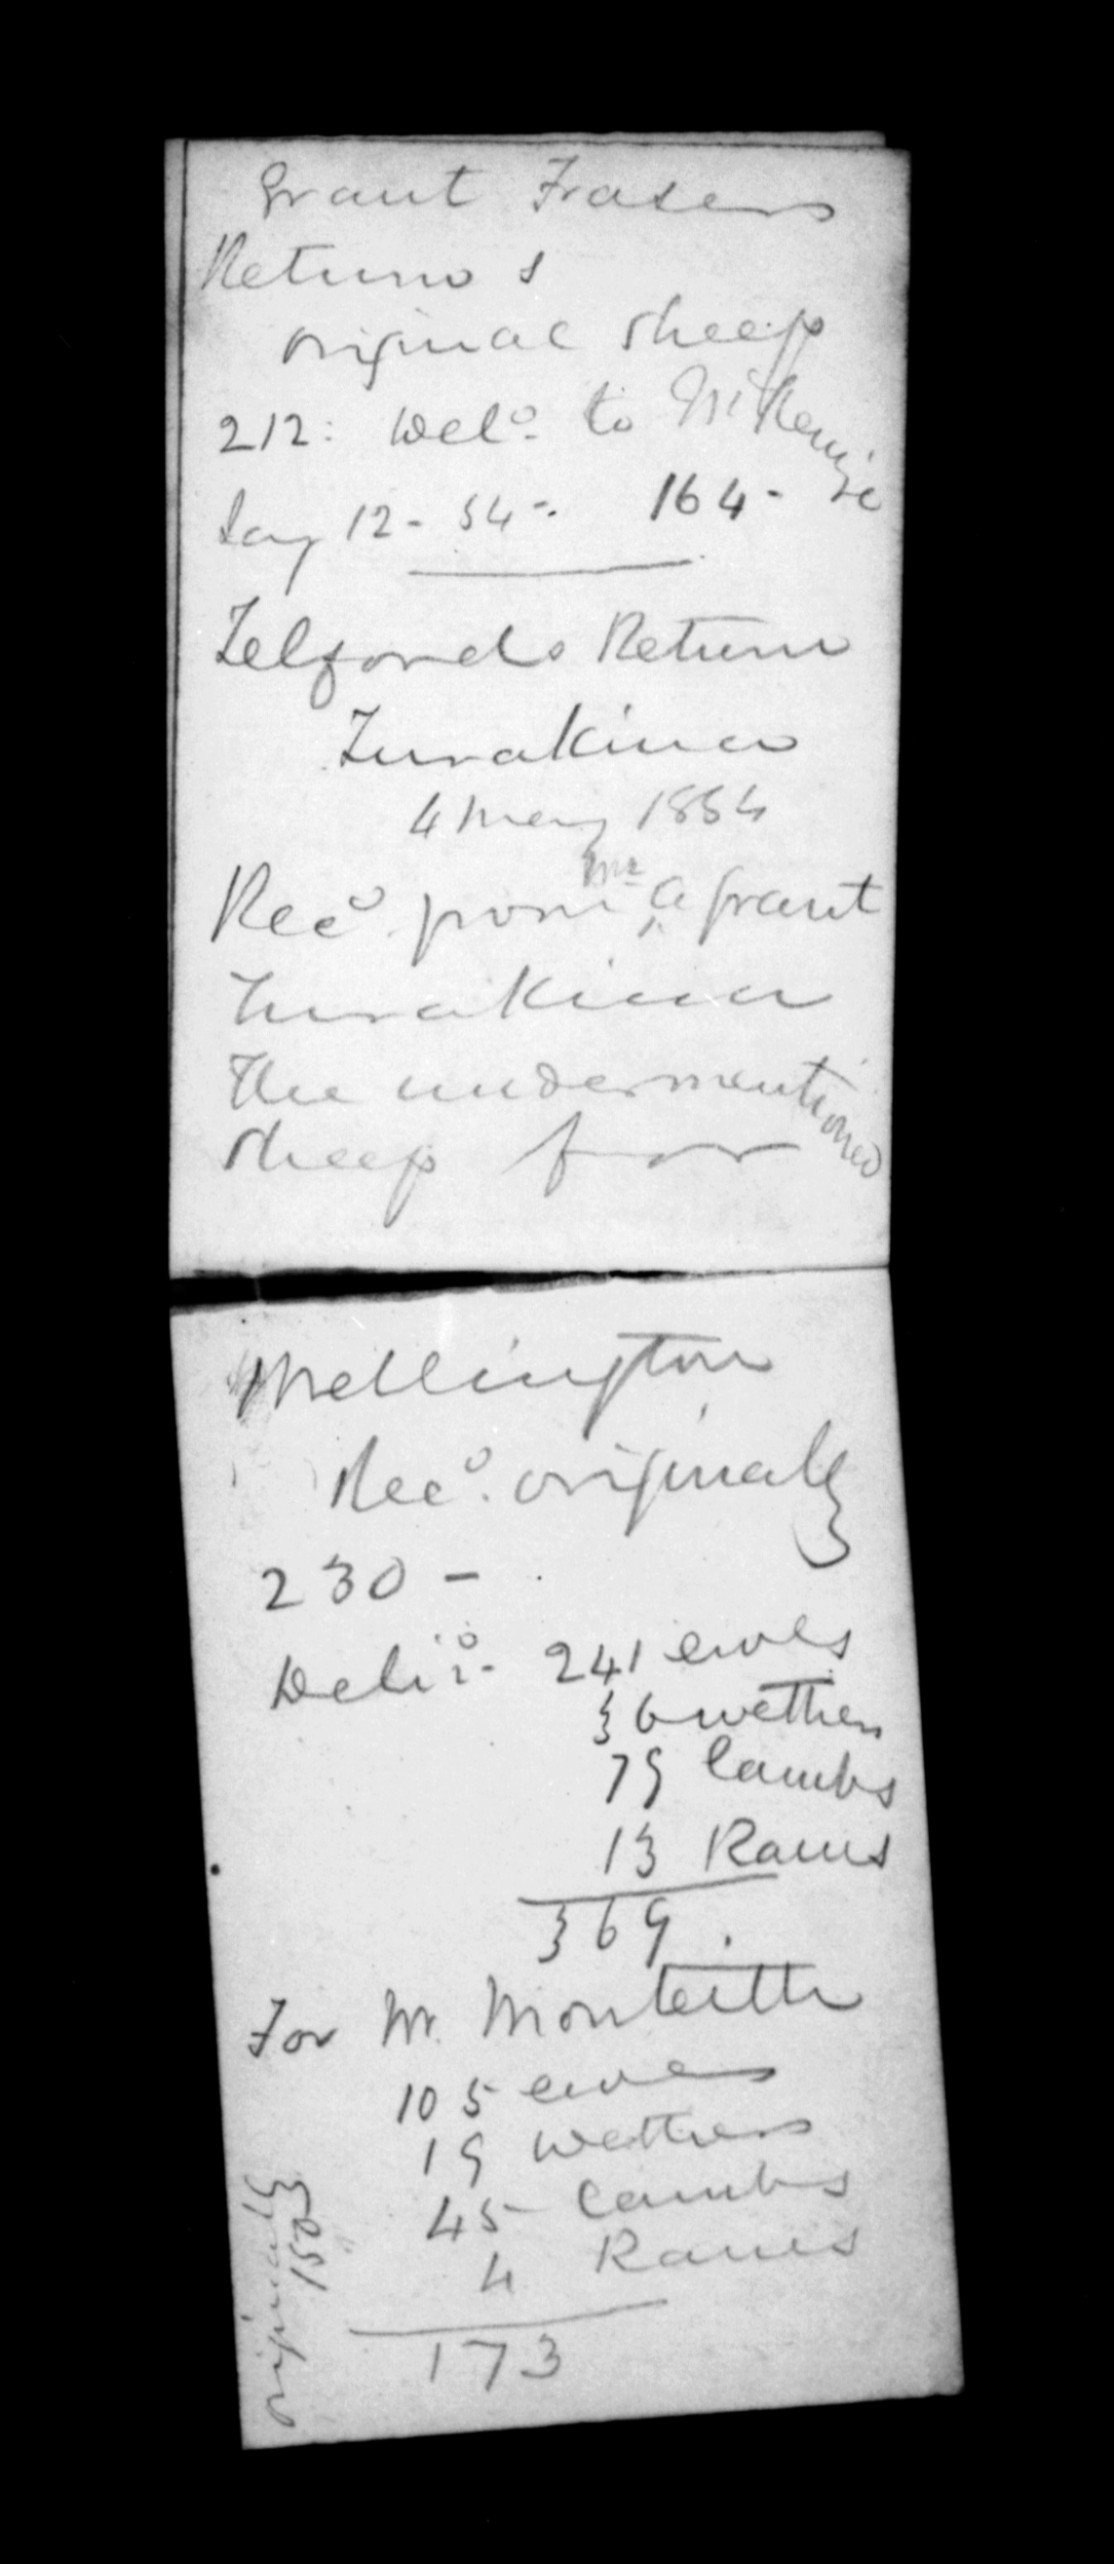 Grant Frasers
Returns
original sheep
212: Deld. to McKenzie
Say 12 - 54 -. 164 -
Telfords Return
Turakina
4 May 1854
Recd from Mr A Grant
Turakina
the undermentioned
sheep for
Wellington
Recd. originally
230 -
Delivd. 241 ewes
36 wethers
79 lambs
13 Rams
369.
For Mr. Monteith
105 ewes
19 wethers
45 lambs
4 Rams
173
originally